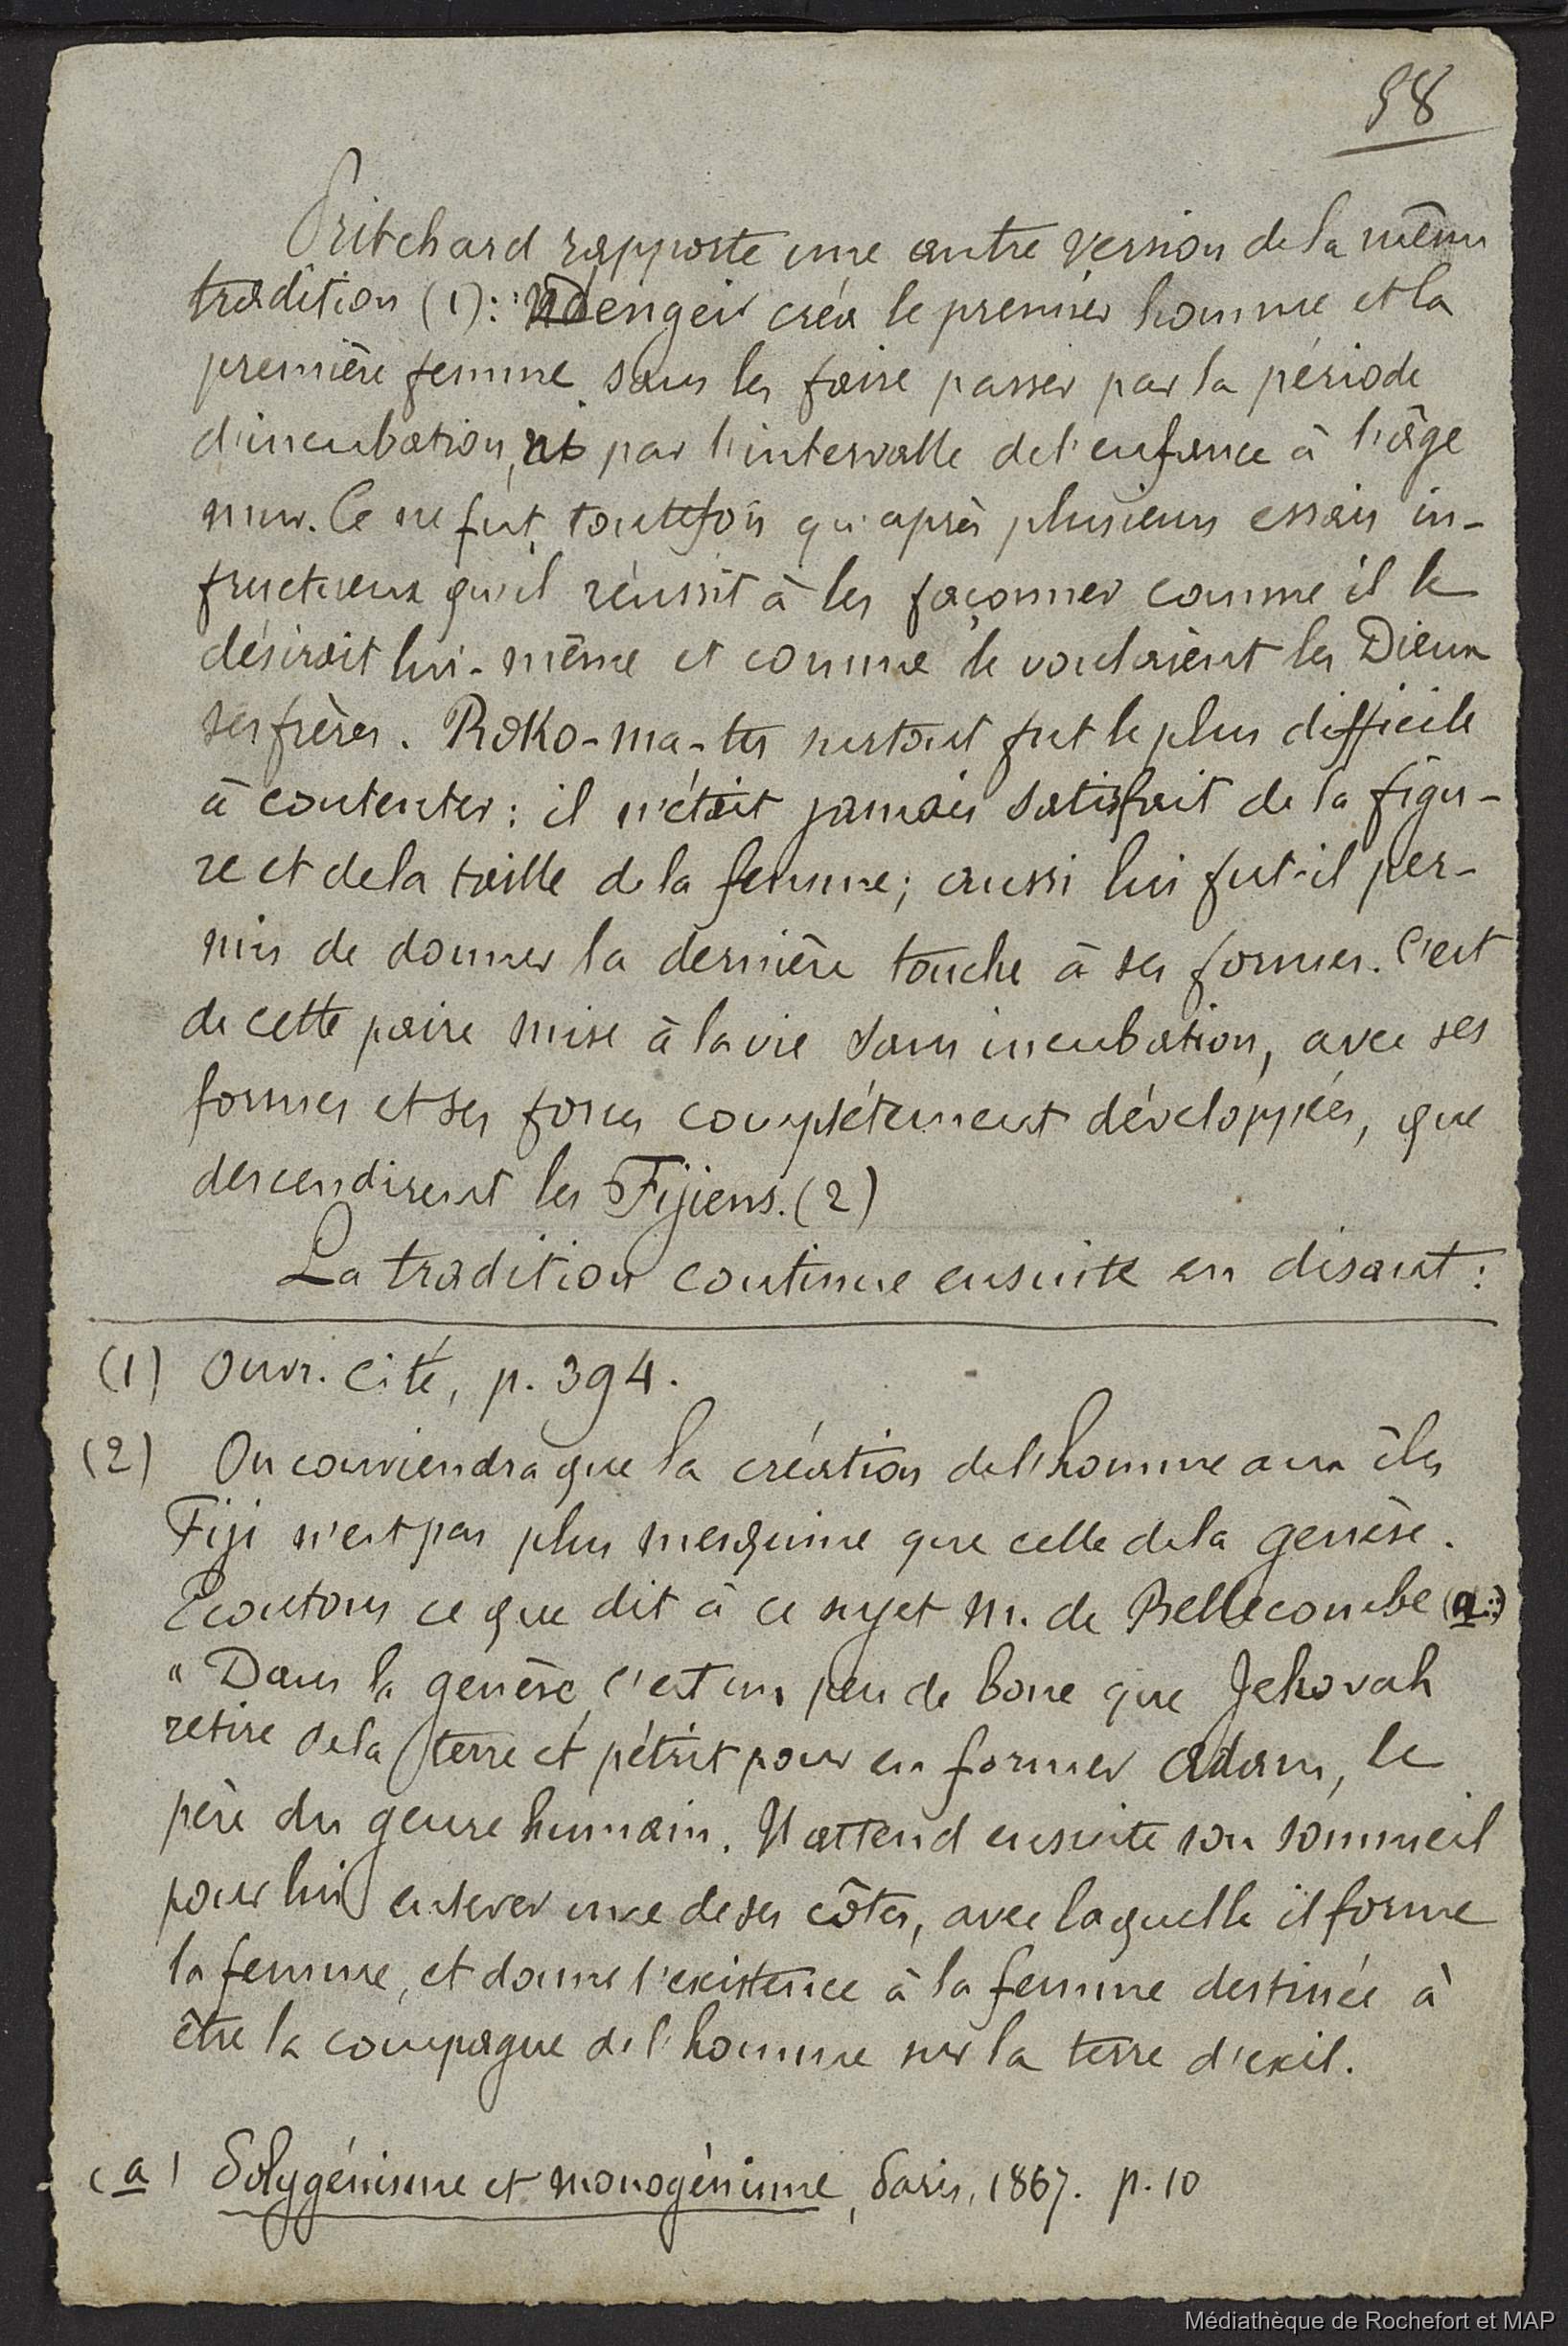 58
Pritchard rapporte une autre version de la même
tradition (1): Ndengei créa le premier homme et la
première femme sans les faire passer par la période
d'incubation, ni par l'intervalle de l'enfance à l'âge
mur. Ce ne fut, toutefois qu'après plusieurs essais in-
fructueux qu'il réussit à les façonner comme il le
désirait lui-même et comme le voulaient les Dieux
ses frères. Roko-ma-tu surtout fut le plus difficile
à contenter : il n'était jamais satisfait de la figu-
re et de la taille de la femme; aussi lui fut-il per-
mis de donner la dernière touche à ses formes. C'est
de cette paire mise à la vie sans incubation, avec ses
formes et ses forces complétement développées, que
descendirent les Fijiens. (2)
La tradition continue ensuite en disant :
(1) Ouvr. cité, p. 394.
(2) On conviendra que la création de l'homme aux îles
Fiji n'est pas plus mesquine que celle de la genèse.
Ecoutons ce que dit à ce sujet M. de Bellecombe (a:)
" Dans la genèse, c'est un peu de boue que Jehovah
retire de la terre et pétrit pour en former Adam, le
père du genre humain. Il attend ensuite son sommeil
pour lui enlever une de ses côtes, avec laquelle il forme
la femme, et donne l'existence à la femme destinée à
être la compagne de l'homme sur la terre d'exil.
(a) Polygénisme et monogénisme, Paris, 1867. p. 10
Médiathèque de Rochefort et MAP